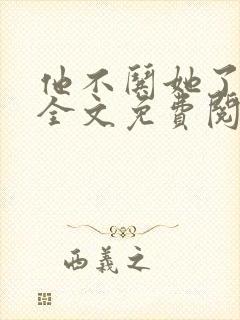 他不闻她了
全文免费阅
西義之